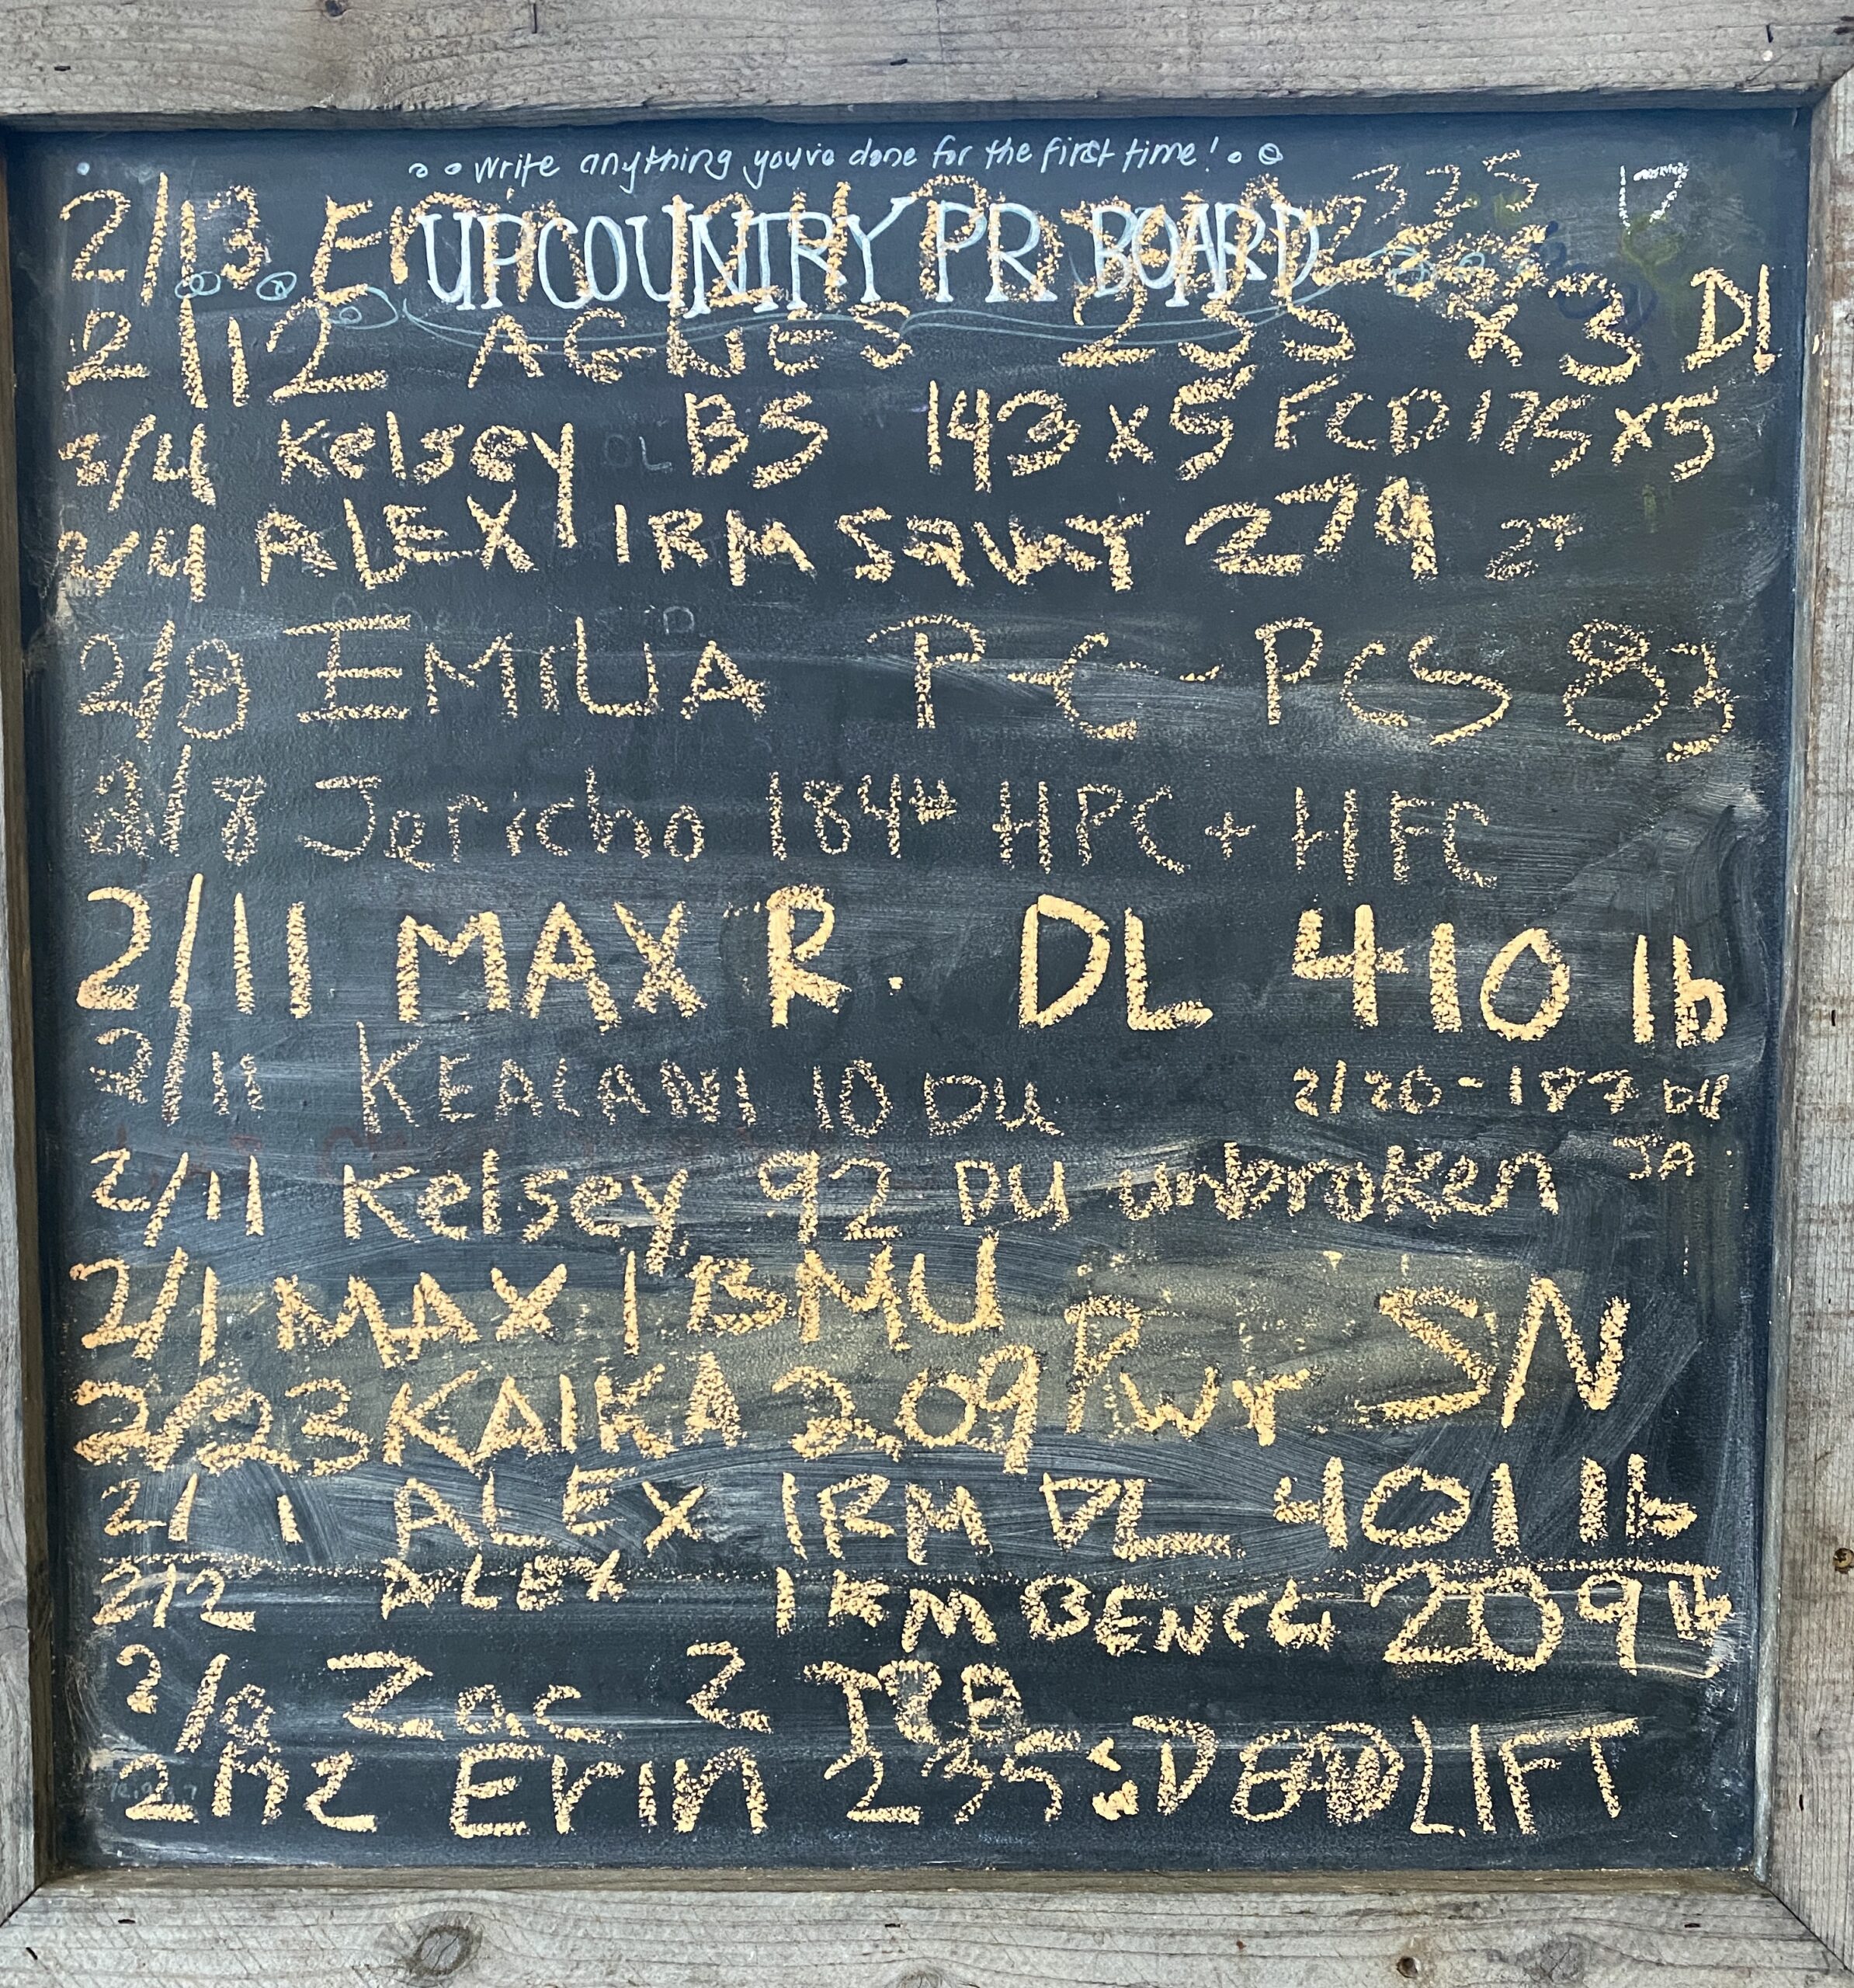 write anything you've done for the first time!
UPCOUNTRY PR BOARD
2/13 325
2/12 AGNES 255 x 3 D!
2/4 Kelsey BS 143 x 5 FCD 175 x5
2/4 ALEX 1RM SQUAT 279
2/8 EMILIA P-C-PCS 83
2/8 Jericho 184# HPC + HFC
2/11 MAX R. DL 410 lb
2/11 KEALANI 10 DU
2/20 - 187 DU
JA
2/11 Kelsey 92 DU unbroken
2/1 MAX 1 BMU
2/23 KAIKA 209 Pwr SN
2/1 ALEX 1RM DL 401 lb
2/2 ALEX 1RM BENCH 209 lb
Zac 2
Erin 235 DEADLIFT